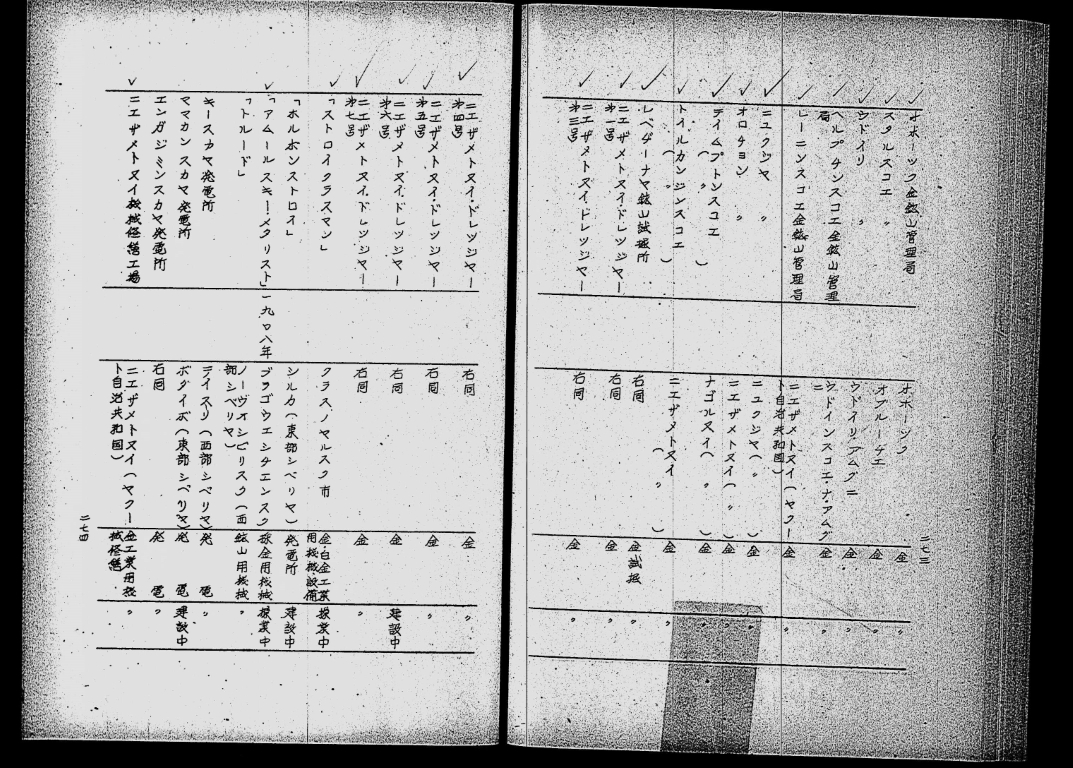 オホーツク金鉱山管理局 オホーツク 金 〃
スタルスコエ 〃 オブルーチエ 金 〃
ウドイリ 〃 ウドイリ(アムグニ 金 〃
ヘルプチンスコエ金鉱山管理局 ウドインスコエ・ナ・アムグニ 金 〃
レーニンスコエ金鉱山管理局 ニエザメトヌイ(ヤクート自治共和国) 金 〃
ニユクジヤ 〃 ニユクジヤ( 〃 ) 金 〃
オロチヨン 〃 ニエザメトヌイ( 〃 ) 金 〃
テイムプトンスコエ( 〃 ) ナゴルヌイ( 〃 ) 金 〃
トイルカンジンスコエ( 〃 ) ニエザメトヌイ( 〃 )
レベヂーナヤ鉱山試掘所 右同 金試掘 〃
ニエザメトヌイ・ドレツジヤー第一号 右同 金 〃
ニエザメトヌイドレツジヤー第三号 右同 金 〃
二七三
ニエザメトヌイ・ドレツジヤー第四号 右同 金 〃
ニエザメトヌイ・ドレツジヤー第五号 右同 金 〃
ニエザメトヌイ・ドレツジヤー第六号 右同 金 建設中
ニエザメトヌイ・ドレツジヤー第七号 右同 金 〃
「ストロイクラスマシ」 クラスノヤルスク市 金・白金工業用機械設備 操業中
「ホルボンストロイ」 シルカ(東部シベリヤ) 発電所 建設中
「アムールスキー・メタリスト」 一九〇八年 ブラゴウエシチエンスク 採金用機械 操業中
「トルード」 ノーヴオシビリスク(西部シベリヤ) 鉱山用機械 〃
キースカヤ発電所 テイスリ(西部シベリヤ) 発電 〃
ママカンスカヤ発電所 ボダイボ(東部シベリヤ) 発電 建設中
エンガジミンスカヤ発電所 右同 発電 〃
ニエザメトヌイ機械修繕工場 ニエザメトヌイ(ヤクート自治共和国) 金工業用機械修繕 〃
二七四